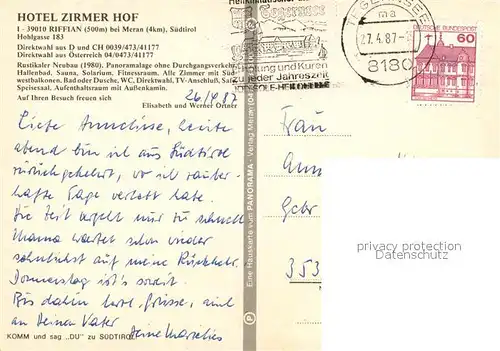 HOTEL ZIRMER HOF
I - 39010 RIFFIAN (500m) bei Meran (4km), Südtirol
Hohlgasse 183
Direktwahl aus D und CH 0039/473/41177
Direktwahl aus Österreich 04/0473/41177
Rustikaler Neubau (1980). Panoramalage ohne Durchgangsverkehr,
Hallenbad, Sauna, Solarium, Fitnessraum. Alle Zimmer mit Süd-
westbalkonen, Bad oder Dusche, WC, Direktwahl, TV-Anschluß, Saf
Speisesaal. Aufenthaltsraum mit Außenkamin.
Auf Ihren Besuch freuen sich
Elisabeth und Werner Ortner
26/4 87
Liebe Anneliese, heute
abend bin ich aus Südtirol
zurückgekehrt, wo ich zauber-
hafte Tage verlebt habe.
Die Zeit vergeht nur zu schnell
Mama wartet schon wieder
sehnlichst auf meine Rückkehr.
Donnerstag ist's soweit.
Bis dahin herzl. Grüsse, und
an Deinen Vater
Deine Marlies
KOMM und sag „DU" zu SÜDTIROL
Eine Hauskarte vom PANORAMA - Verlag Meran
Tegernsee
Erholung und Kuren
zu jeder Jahreszeit
JOD-SOLE-HEIL
TEGERNSEE
ma
27.4.87-
8180
DEUTSCHE BUNDESPOST
60
Frau
Ann
Gebr
353
privacy protection
Datenschutz.